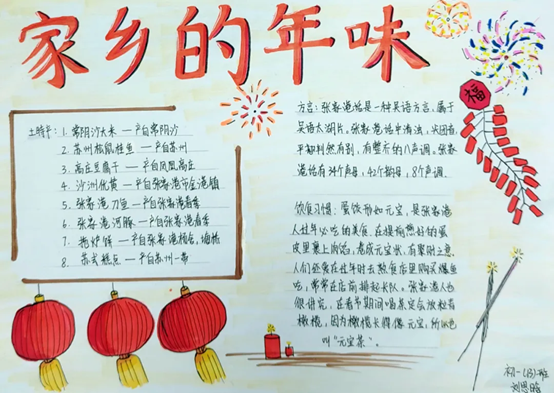 家乡的年味
土特产：1. 常阴沙大米 — 产自常阴沙
2. 苏州松鼠桂鱼 — 产自苏州
3. 高庄豆腐干 — 产自凤凰高庄
4. 沙洲优黄 — 产自张家港市金港镇
5. 张家港刀鱼 — 产自张家港
6. 张家港河豚 — 产自张家港
7. 拖炉饼 — 产自张家港杨舍、塘桥
8. 苏式糕点 — 产自苏州一带
方言：张家港话是一种吴语方言、属于
吴语太湖片。张家港话中清浊、尖团音、
平翘判然有别，有整齐的八声调。张家
港话有34个声母，42个韵母，8个声调。
饮食习惯：蛋饺形如元宝，是张家港
人过年必吃的美食，在提前煎好的蛋
皮里裹上肉馅，卷成元宝状，有聚财之意。
人们还喜在过年时去熟食店里购买爆鱼
吃，常常在店前排起长队。张家港人也
很讲究，在春节期间喝茶定会放粒青
橄榄，因为橄榄长得像元宝，所以也
叫“元宝茶”。
福
初一(13)班
刘思晗